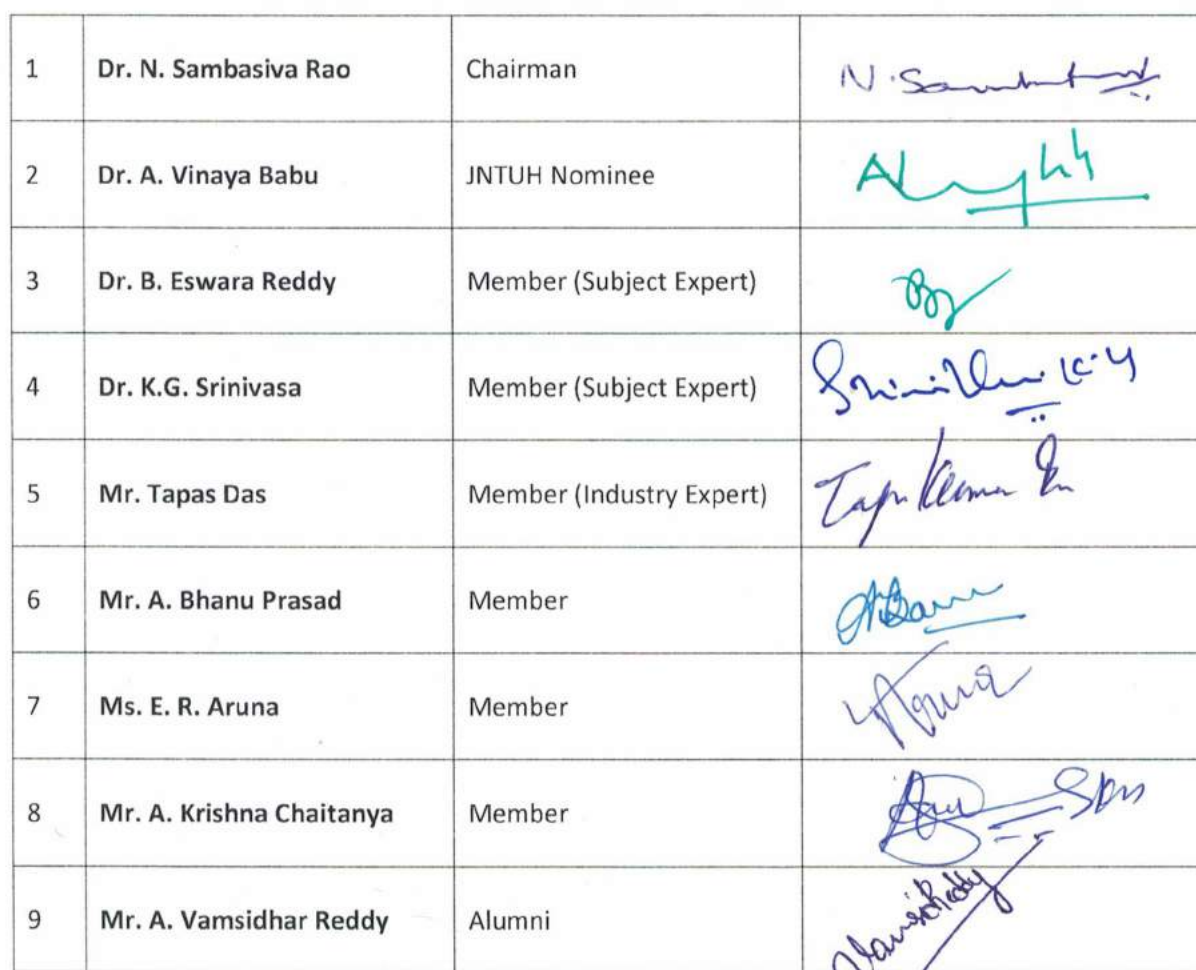 1 Dr. N. Sambasiva Rao Chairman
2 Dr. A. Vinaya Babu JNTUH Nominee
3 Dr. B. Eswara Reddy Member (Subject Expert)
4 Dr. K.G. Srinivasa Member (Subject Expert)
5 Mr. Tapas Das Member (Industry Expert)
6 Mr. A. Bhanu Prasad Member
7 Ms. E. R. Aruna Member
8 Mr. A. Krishna Chaitanya Member
9 Mr. A. Vamsidhar Reddy Alumni